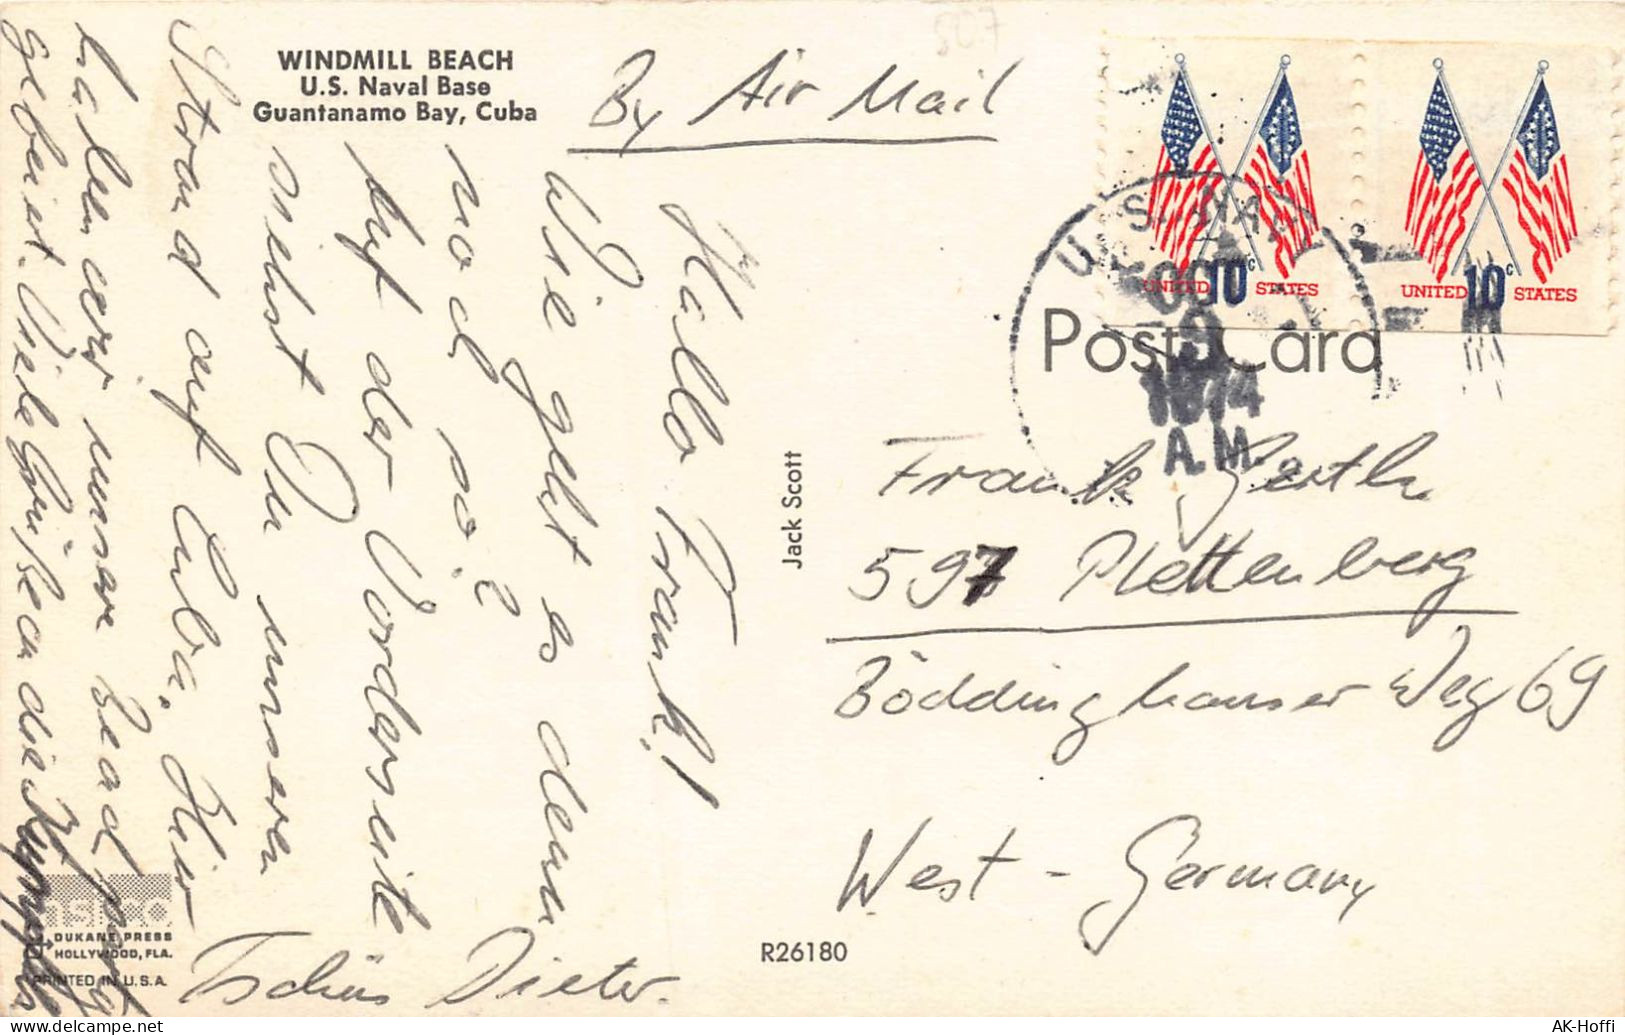 WINDMILL BEACH
U.S. Naval Base
Guantanamo Bay, Cuba
By Air Mail
Hallo Frank!
Wie geht es denn
noch so?
Auf der Vorderseite
siehst Du unseren
Strand auf Cuba. Hier
haben wir unsere
gebeint. Viele Grüße an die
Tschüs Dieter.
DUKANE PRESS
HOLLYWOOD, FLA.
PRINTED IN U.S.A.
Jack Scott
R26180
UNITED 10c STATES
UNITED 10c STATES
U.S. NAVY
OCT
9
1974
A.M.
Post Card
Frank
597 Plettenberg
Böddinghauser Weg 69
West-Germany
AK-Hoffi